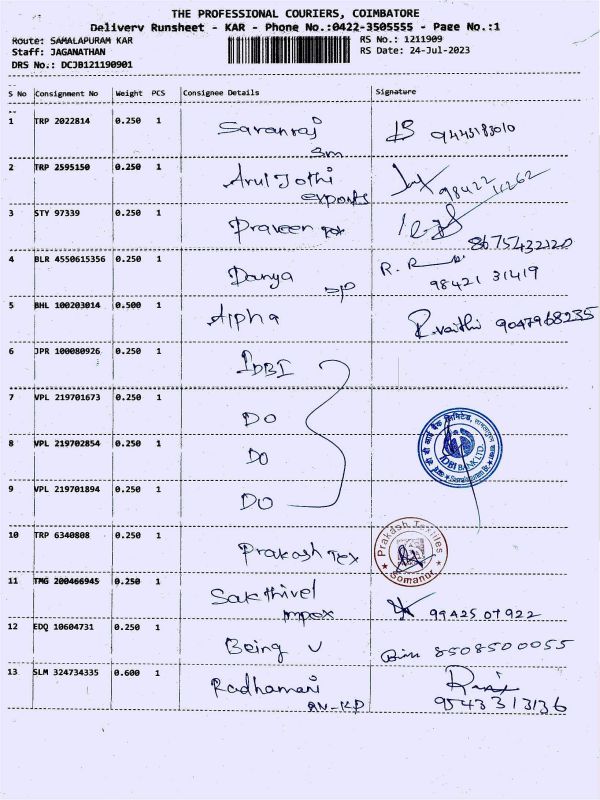 THE PROFESSIONAL COURIERS, COIMBATORE
Delivery Runsheet - KAR - Phone No.:0422-3505555 - Page No.:1
Route: SAMALAPURAM KAR RS No.: 1211909
Staff: JAGANATHAN RS Date: 24-Jul-2023
DRS No.: DCJB121190901
S No Consignment No Weight PCS Consignee Details Signature
1 TRP 2022814 0.250 1 Saranraj 9443183010
Sm
2 TRP 2595150 0.250 1 Arul Jothi 98422 11262
exports
3 STY 97339 0.250 1 Praveen Tex 8675432120
4 BLR 4550615356 0.250 1 Danya R. R
98421 31419
5 BHL 100203014 0.500 1 Alpha R.vaithi 9047968235
6 JPR 100080926 0.250 1 IDBI
7 VPL 219701673 0.250 1 DO
8 VPL 219702854 0.250 1 DO
IDBI BANK LTD.
9 VPL 219701894 0.250 1 DO
10 TRP 6340808 0.250 1 Prakash Tex Prakash Textiles
Somanur
11 TMG 200466945 0.250 1 Sakthivel 99425 07922
impex
12 EDQ 10604731 0.250 1 Being U 8508500055
13 SLM 324734335 0.600 1 Radhamani
9543313136